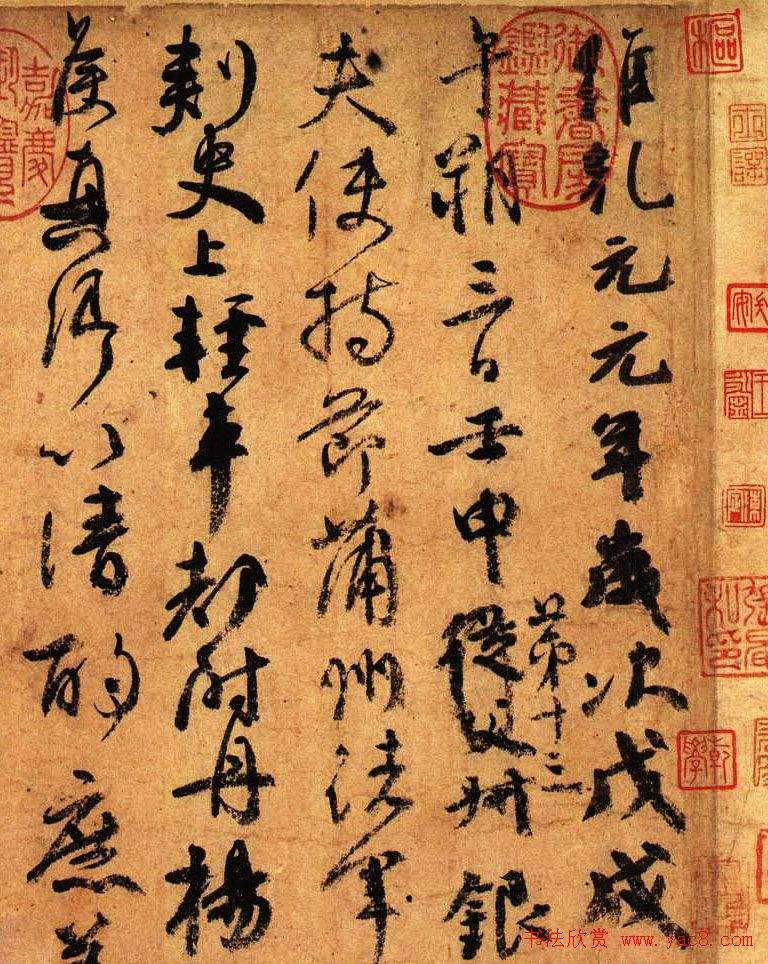 維乾元元年歲次戊戌
午朔三日壬申第十三從父叔銀
夫使持節蒲州諸軍
刺史上輕車都尉丹楊
侯真卿以清酌庶羞
御書房鑑藏寶
嘉慶
书法欣赏 www.yac8.com